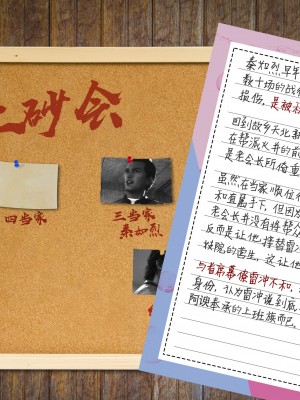 砂会
四当家
三当家
秦如烈
秦如烈早年
数十场的战
损伤,是被
回到故乡天北
在帮派火并的前
是老会长所倚重
虽然在当家顺位
和直属手下,但因
老会长并没有将帮众
反而是让他接替雷
铁院的营生,这让他
与首席幕僚雷冲不和,
身份,认为雷冲说到底
阿谀奉承的上班族而已